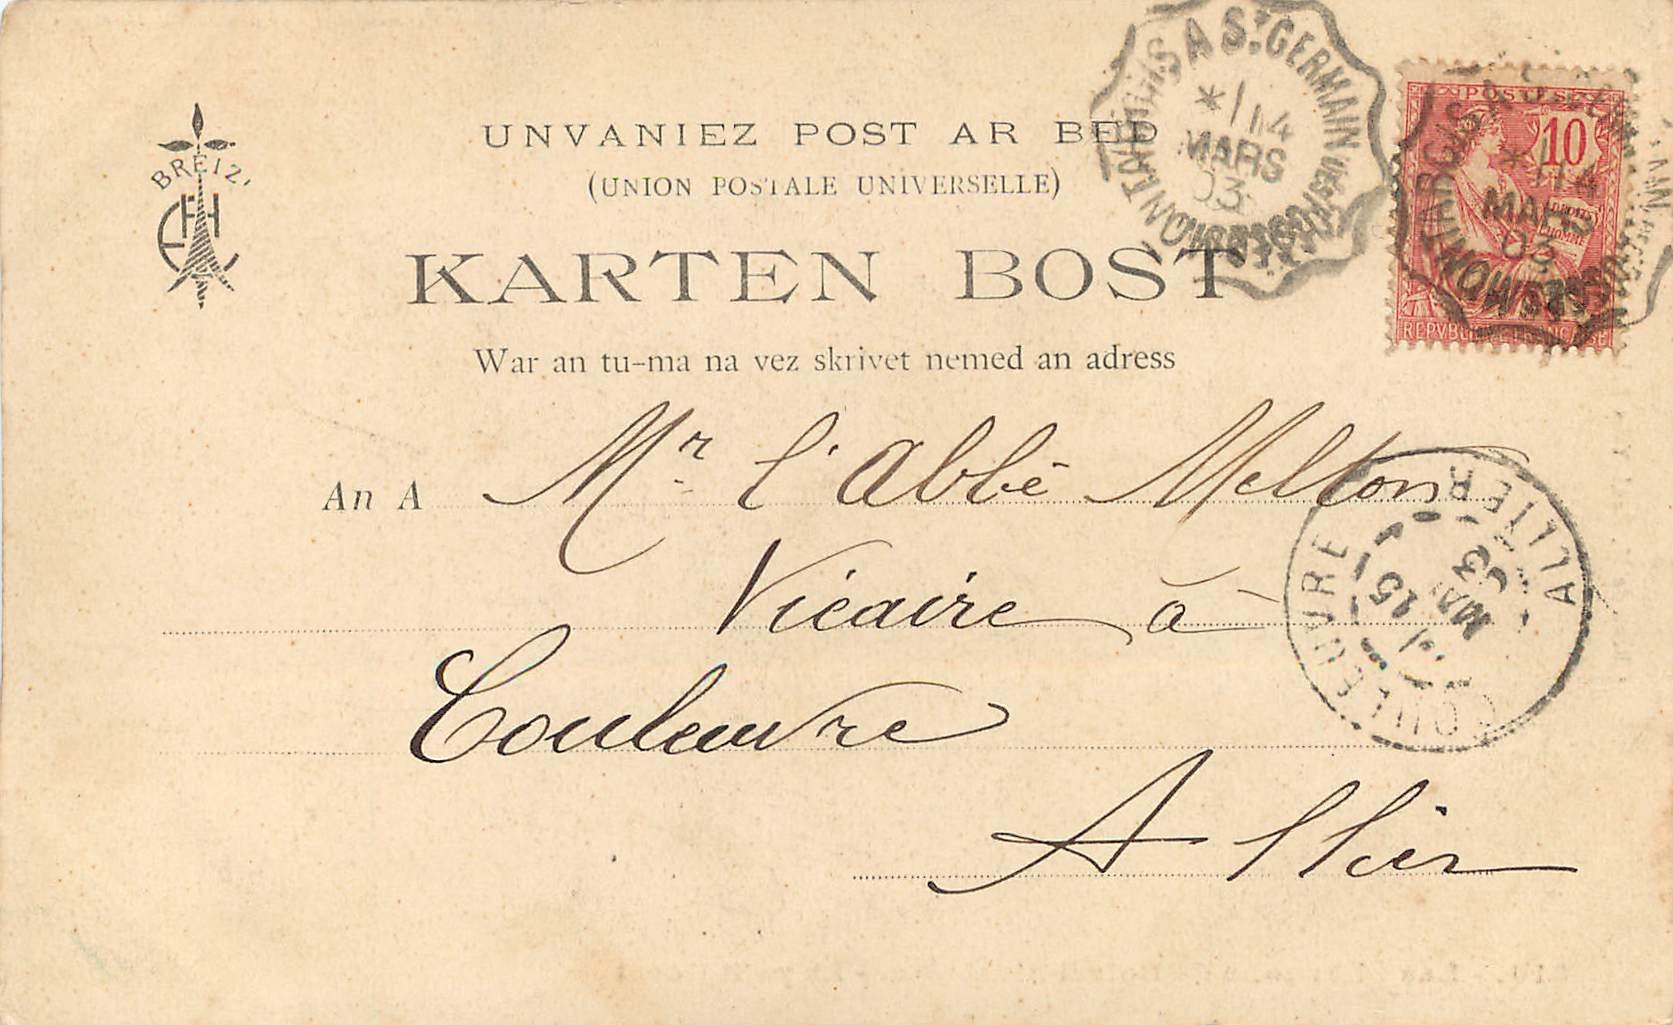 BREIZ
UNVANIEZ POST AR BED
(UNION POSTALE UNIVERSELLE)
KARTEN BOST
War an tu-ma na vez skrivet nemed an adress
An A Mr l'Abbé Melton
Vicaire à
Couleuvre
Allier
MONTARGIS A ST GERMAIN DES FOSSÉS
14
MARS
03
POSTES
10
DROITS
HOMME
14
MARS
03
REPVBLIQUE FRANÇAISE
COULEUVRE ALLIER
15
03